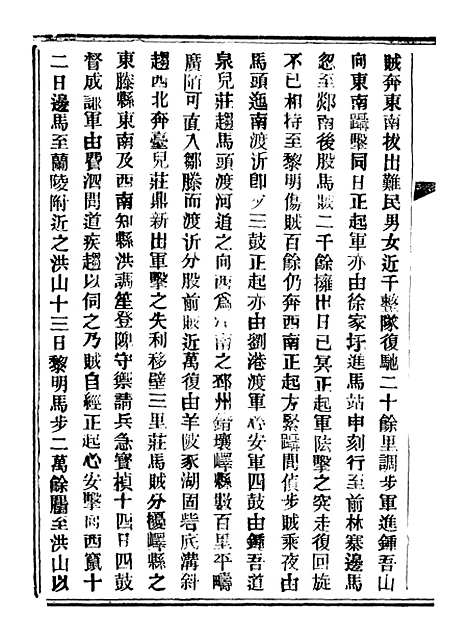 賊奔東南拔出難民男女近千整隊復馳二十餘里調步軍進鍾吾山
向東南躡擊同日正起軍亦由徐家圩進馬站申刻行至前林寨邊馬
忽至郯南後股馬賊二千餘擁出日已冥正起軍陸擊之突走復回旋
不已相持至黎明傷賊百餘仍奔西南正起方緊躡間偵步賊乘夜由
馬頭迤南渡沂卽夕三鼓正起亦由劉港渡軍心安軍四鼓由鍾吾道
泉兒莊趨馬頭渡河道之向西爲江南之邳州錯壤嶧縣數百里平疇
廣陌可直入鄒滕而渡沂分股前賊近萬復由羊陂豕湖固砦底溝斜
趨西北奔臺兒莊鼎新出軍擊之失利移壁三里莊馬賊分擾嶧縣之
東滕縣東南及西南知縣洪調笙登陴守禦請兵急寶楨十四日四鼓
督成謙軍由費泗間道疾趨以伺之乃賊自經正起心安擊向西竄十
二日邊馬至蘭陵附近之洪山十三日黎明馬步二萬餘屬至洪山以